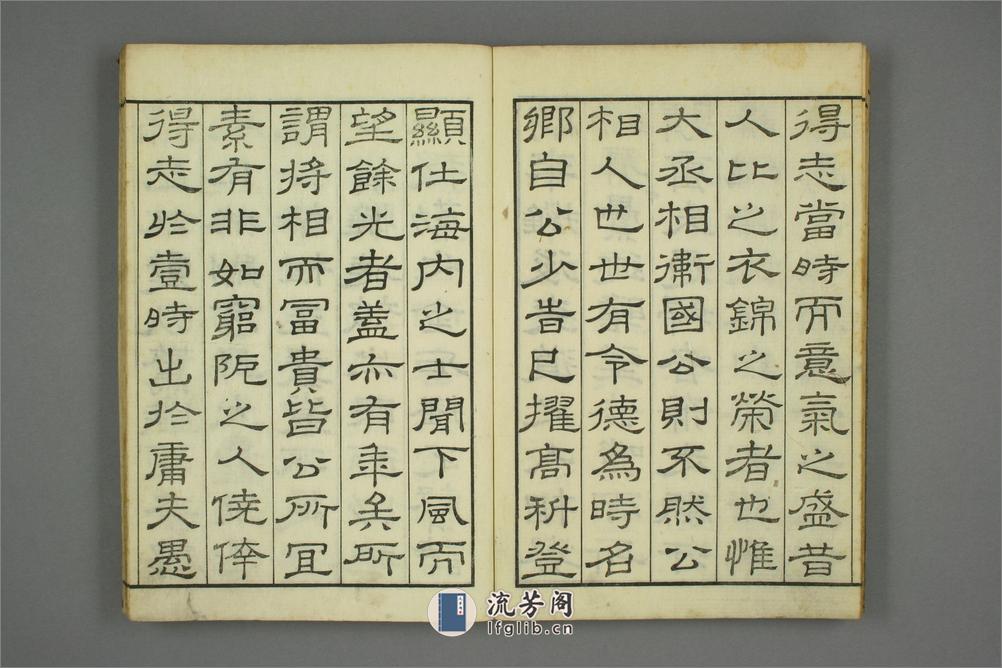 得志當時而意氣之盛昔
人比之衣錦之榮者也惟
大丞相衞國公則不然公
相人世世有令德爲時名
鄉自公少皆已擢高科登
顯仕海内之士聞下風而
望餘光者蓋亦有年矣所
謂將相而冨貴皆公所冝
素有非如窮阨之人僥倖
得志於壹時出於庸夫愚
流芳阁
lfglib.cn